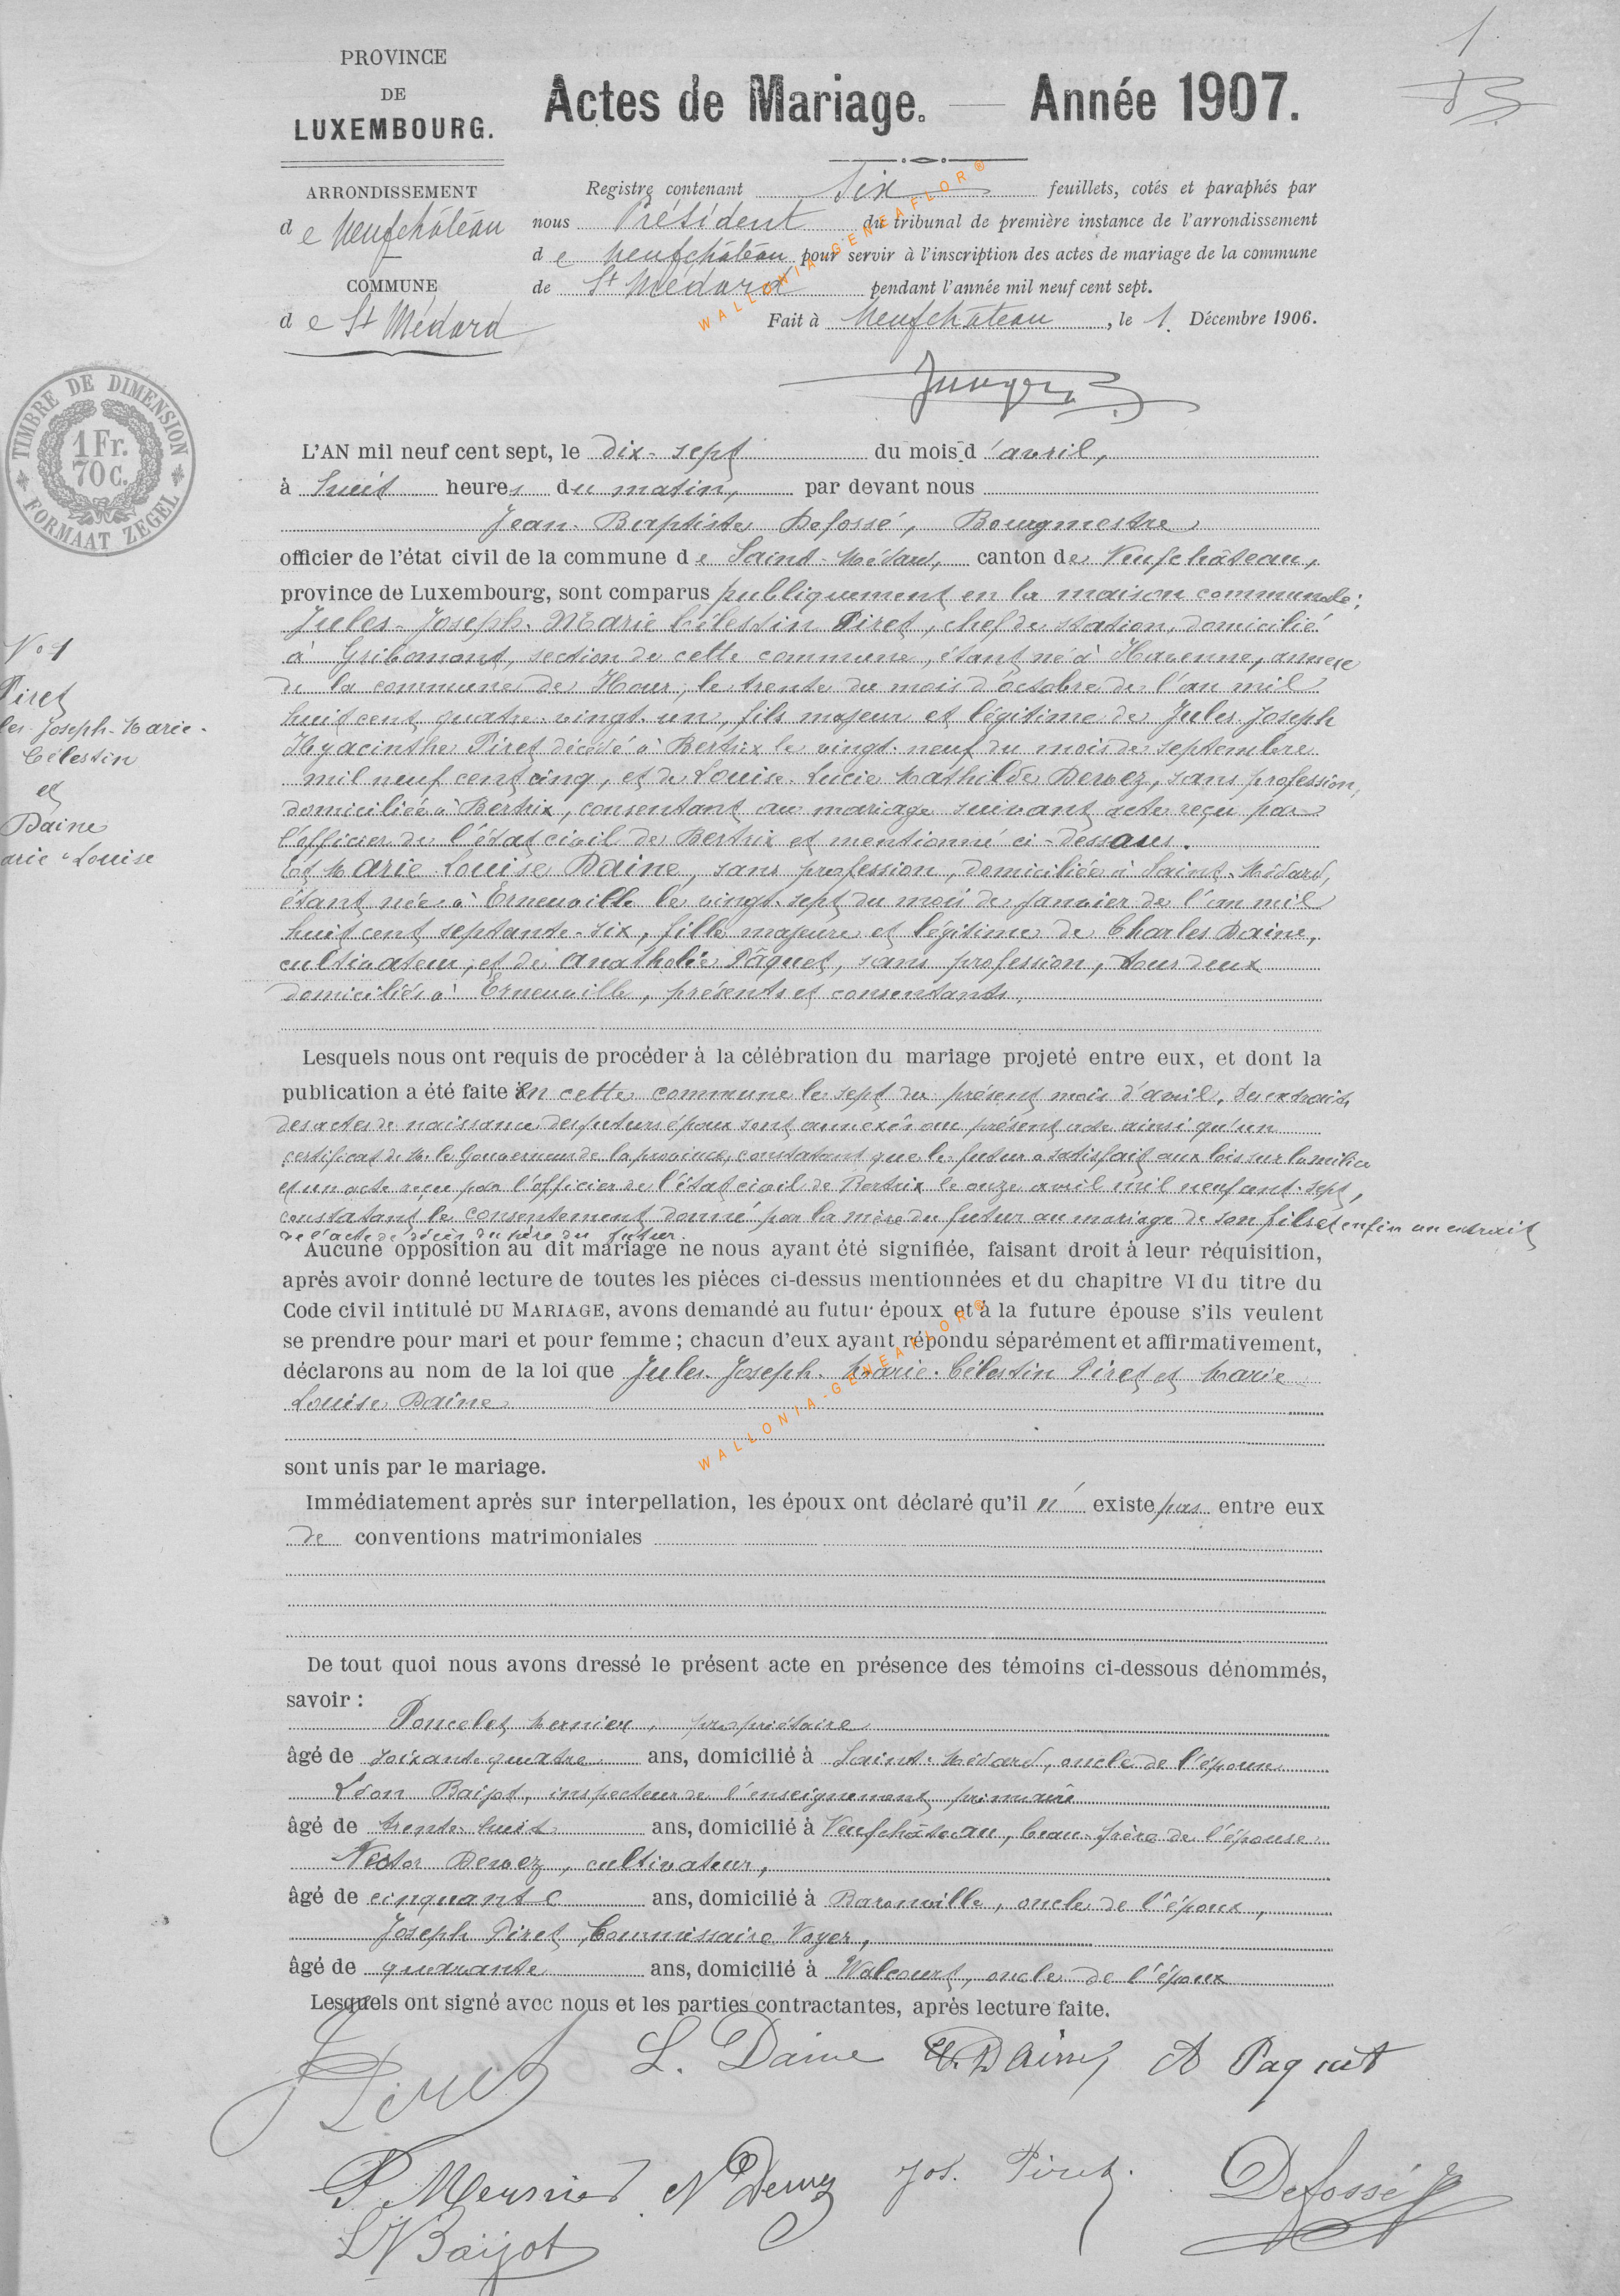 PROVINCE
DE
LUXEMBOURG.
Actes de Mariage. — Année 1907.
1
ARRONDISSEMENT
de Neufchâteau
COMMUNE
de St Médard
Registre contenant six feuillets, cotés et paraphés par
nous Président du tribunal de première instance de l'arrondissement
de Neufchâteau pour servir à l'inscription des actes de mariage de la commune
de St Médard pendant l'année mil neuf cent sept.
Fait à Neufchateau, le 1. Décembre 1906.
TIMBRE DE DIMENSION
1 Fr.
70 c.
FORMAAT ZEGEL
L'AN mil neuf cent sept, le dix-sept du mois d'avril,
à huit heures du matin, par devant nous
Jean-Baptiste Defossé, Bourgmestre
officier de l'état civil de la commune de Saint-Médard, canton de Neufchâteau,
province de Luxembourg, sont comparus publiquement en la maison communale:
Jules-Joseph-Marie Célestin Piret, chef de station, domicilié
à Gribomont, section de cette commune, étant né à Havenne, annexe
de la commune de Hour, le trente du mois d'octobre de l'an mil
huit cent quatre-vingt-un, fils majeur et légitime de Jules-Joseph
Hyacinthe Piret décédé à Bertrix le vingt-neuf du mois de septembre
mil neuf cent cinq, et de Louise-Lucie Mathilde Dewez, sans profession,
domiciliée à Bertrix, consentant au mariage suivant acte reçu par
l'officier de l'état civil de Bertrix et mentionné ci-dessous.
Et Marie Louise Daine, sans profession, domiciliée à Saint-Médard,
étant née à Erneuville le vingt-sept du mois de janvier de l'an mil
huit cent septante-six, fille majeure et légitime de Charles Daine,
cultivateur, et de Anatholie Pâquet, sans profession, tous deux
domiciliés à Erneuville, présents et consentants.
N° 1
Piret
les-Joseph-Marie-
Célestin
et
Daine
arie-Louise
Lesquels nous ont requis de procéder à la célébration du mariage projeté entre eux, et dont la
publication a été faite en cette commune le sept du présent mois d'avril. Des extraits
des actes de naissance des futurs époux sont annexés au présent acte ainsi qu'un
certificat de M. le Gouverneur de la province, constatant que le futur a satisfait aux lois sur la milice
et un acte reçu par l'officier de l'état civil de Bertrix le onze avril mil neuf cent-sept,
constatant le consentement donné par la mère du futur au mariage de son fils et enfin un extrait
de l'acte de décès du père du futur.
Aucune opposition au dit mariage ne nous ayant été signifiée, faisant droit à leur réquisition,
après avoir donné lecture de toutes les pièces ci-dessus mentionnées et du chapitre VI du titre du
Code civil intitulé DU MARIAGE, avons demandé au futur époux et à la future épouse s'ils veulent
se prendre pour mari et pour femme ; chacun d'eux ayant répondu séparément et affirmativement,
déclarons au nom de la loi que Jules-Joseph-Marie-Célestin Piret et Marie
Louise Daine
sont unis par le mariage.
Immédiatement après sur interpellation, les époux ont déclaré qu'il n' existe pas entre eux
de conventions matrimoniales
De tout quoi nous avons dressé le présent acte en présence des témoins ci-dessous dénommés,
savoir :
Poncelet Mernier, propriétaire
âgé de soixante quatre ans, domicilié à Saint-Médard, oncle de l'épouse
Léon Baijot, inspecteur de l'enseignement primaire
âgé de trente-huit ans, domicilié à Neufchâteau, beau-frère de l'épouse
Nestor Dewez, cultivateur,
âgé de cinquante ans, domicilié à Baronville, oncle de l'époux,
Joseph Piret, Commissaire Voyer,
âgé de quarante ans, domicilié à Walcourt, oncle de l'époux
Lesquels ont signé avec nous et les parties contractantes, après lecture faite.
J Piret L. Daine Ch. Daine A Paquet
P. Mernier N Dewez Jos. Piret Defossé
L N Baijot
WALLONIA-GENEAFLOR®
WALLONIA-GENEAFLOR®